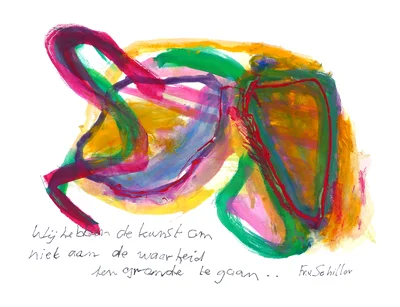 Wij hebben de kunst om
niet aan de waarheid
ten gronde te gaan..
Fr. v. Schiller